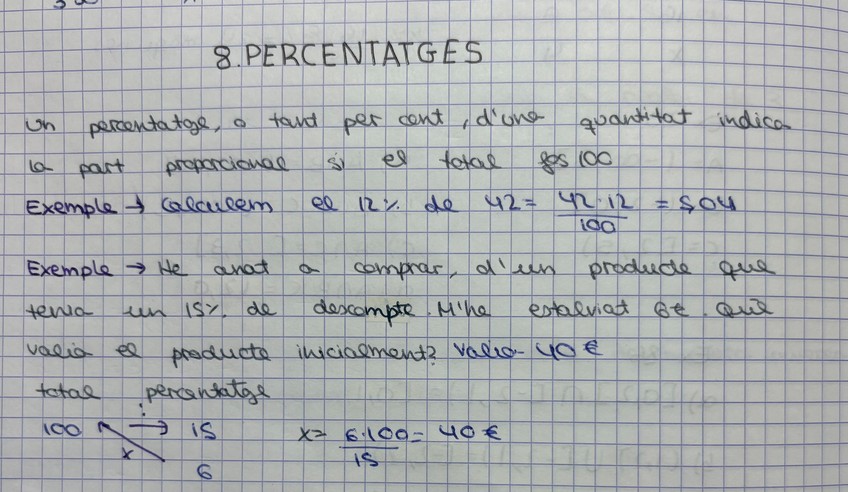 8. PERCENTATGES
Un percentatge, o tant per cent, d'una quantitat indica
la part proporcional si el total fos 100
Exemple → Calculem el 12% de 42 = 42·12/100 = 5,04
Exemple → He anat a comprar, d'un producte que
tenia un 15% de descompte. M'he estalviat 6€. Què
valia el producte inicialment? Valia 40€
total percentatge
100 : → 15 x = 6·100/15 = 40€
x
6